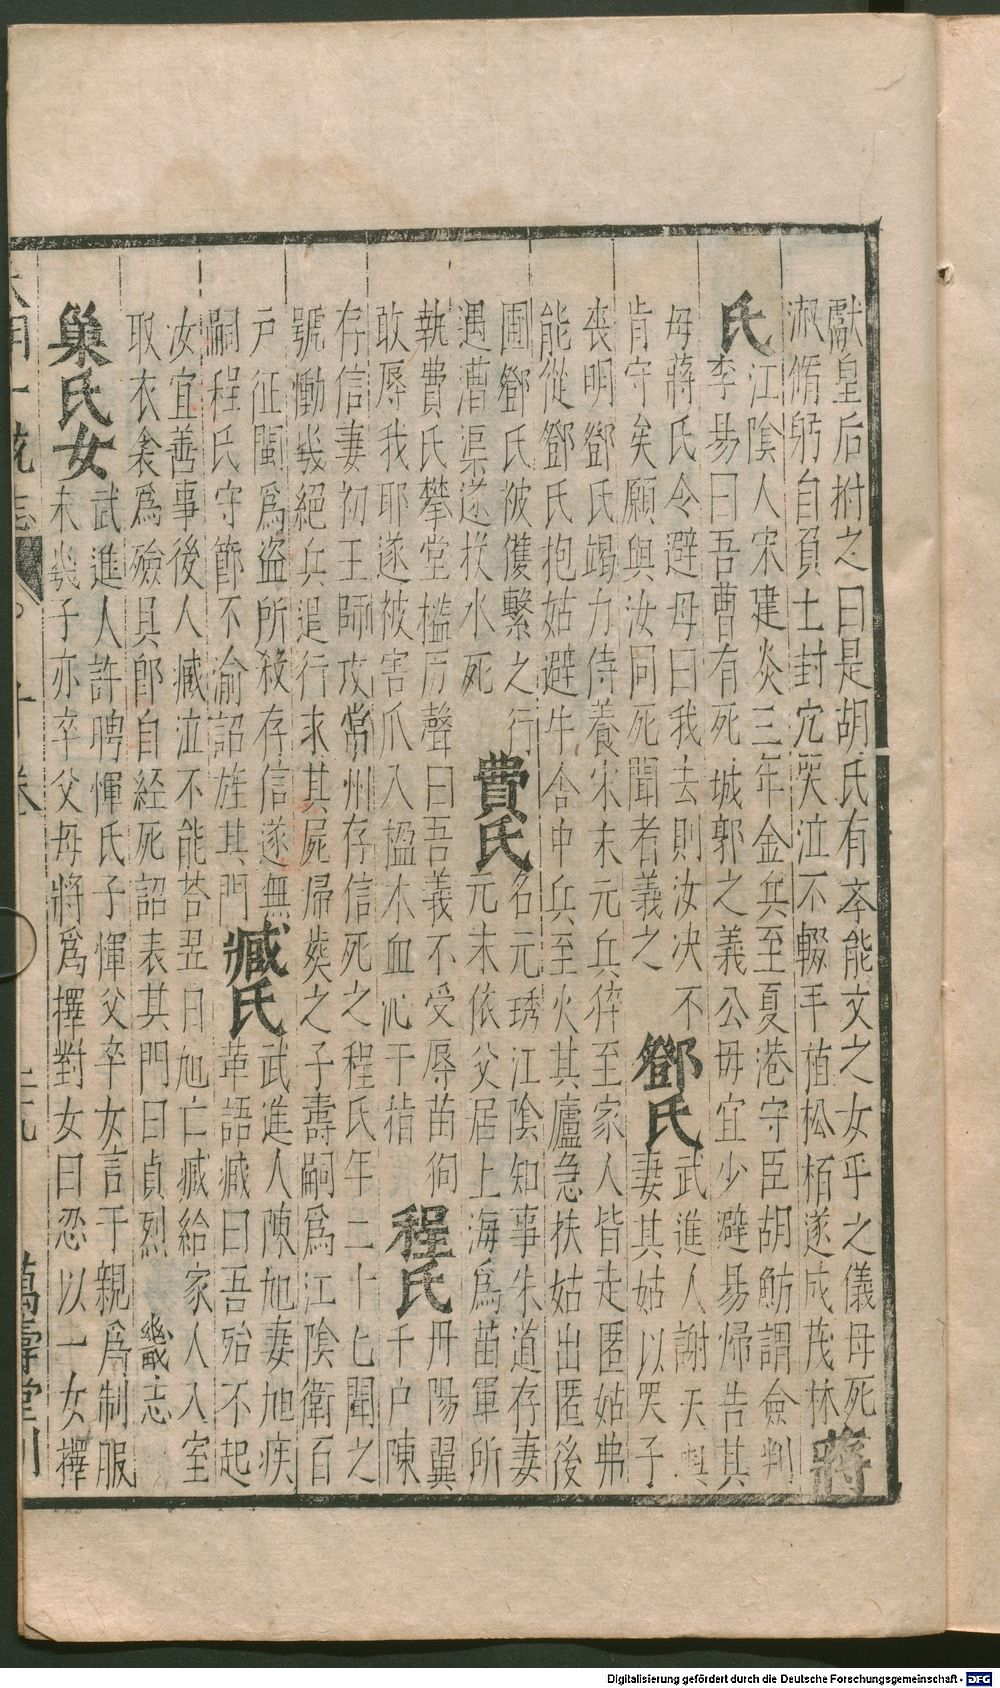 獻皇后拊之曰是胡氏有才能文之女乎之儀母死
淑脩躬自負土封穴哭泣不輟手植松栢遂成茂林
蔣氏
江陰人宋建炎三年金兵至夏港守臣胡魴謂僉判
李昜曰吾曹有死城郭之義公母宜少避昜歸告其
母蔣氏令避母曰我去則汝决不
肯守矣願與汝同死聞者義之
鄧氏
武進人謝天與
妻其姑以哭子
喪明鄧氏竭力侍養宋末元兵猝至家人皆走匿姑弗
能從鄧氏抱姑避牛舍中兵至火其廬急扶姑出匿後
圃鄧氏被獲繫之行
遇漕渠遂投水死
費氏
名元琇江陰知事朱道存妻
元末依父居上海爲苗軍所
執費氏攀堂檻厉聲曰吾義不受辱苗狥
敢辱我耶遂被害爪入楹木血沁于楮
程氏
丹陽翼
千户陳
存信妻初王師攻常州存信死之程氏年二十七聞之
號慟幾絕兵退行求其屍歸葬之子壽嗣爲江陰衛百
户征閩爲盜所殺存信遂無
嗣程氏守節不渝詔旌其門
臧氏
武進人陳旭妻旭疾
革語臧曰吾殆不起
汝宜善事後人臧泣不能荅翌日旭亡臧給家人入室
取衣衾爲殮具卽自経死詔表其門曰貞烈
志
巢氏女
武進人許聘惲氏子惲父卒女言于親爲制服
未幾子亦卒父母將爲擇對女曰忍以一女擇
大明一統志
十卷
萬壽堂刊
Digitalisierung gefördert durch die Deutsche Forschungsgemeinschaft - DFG